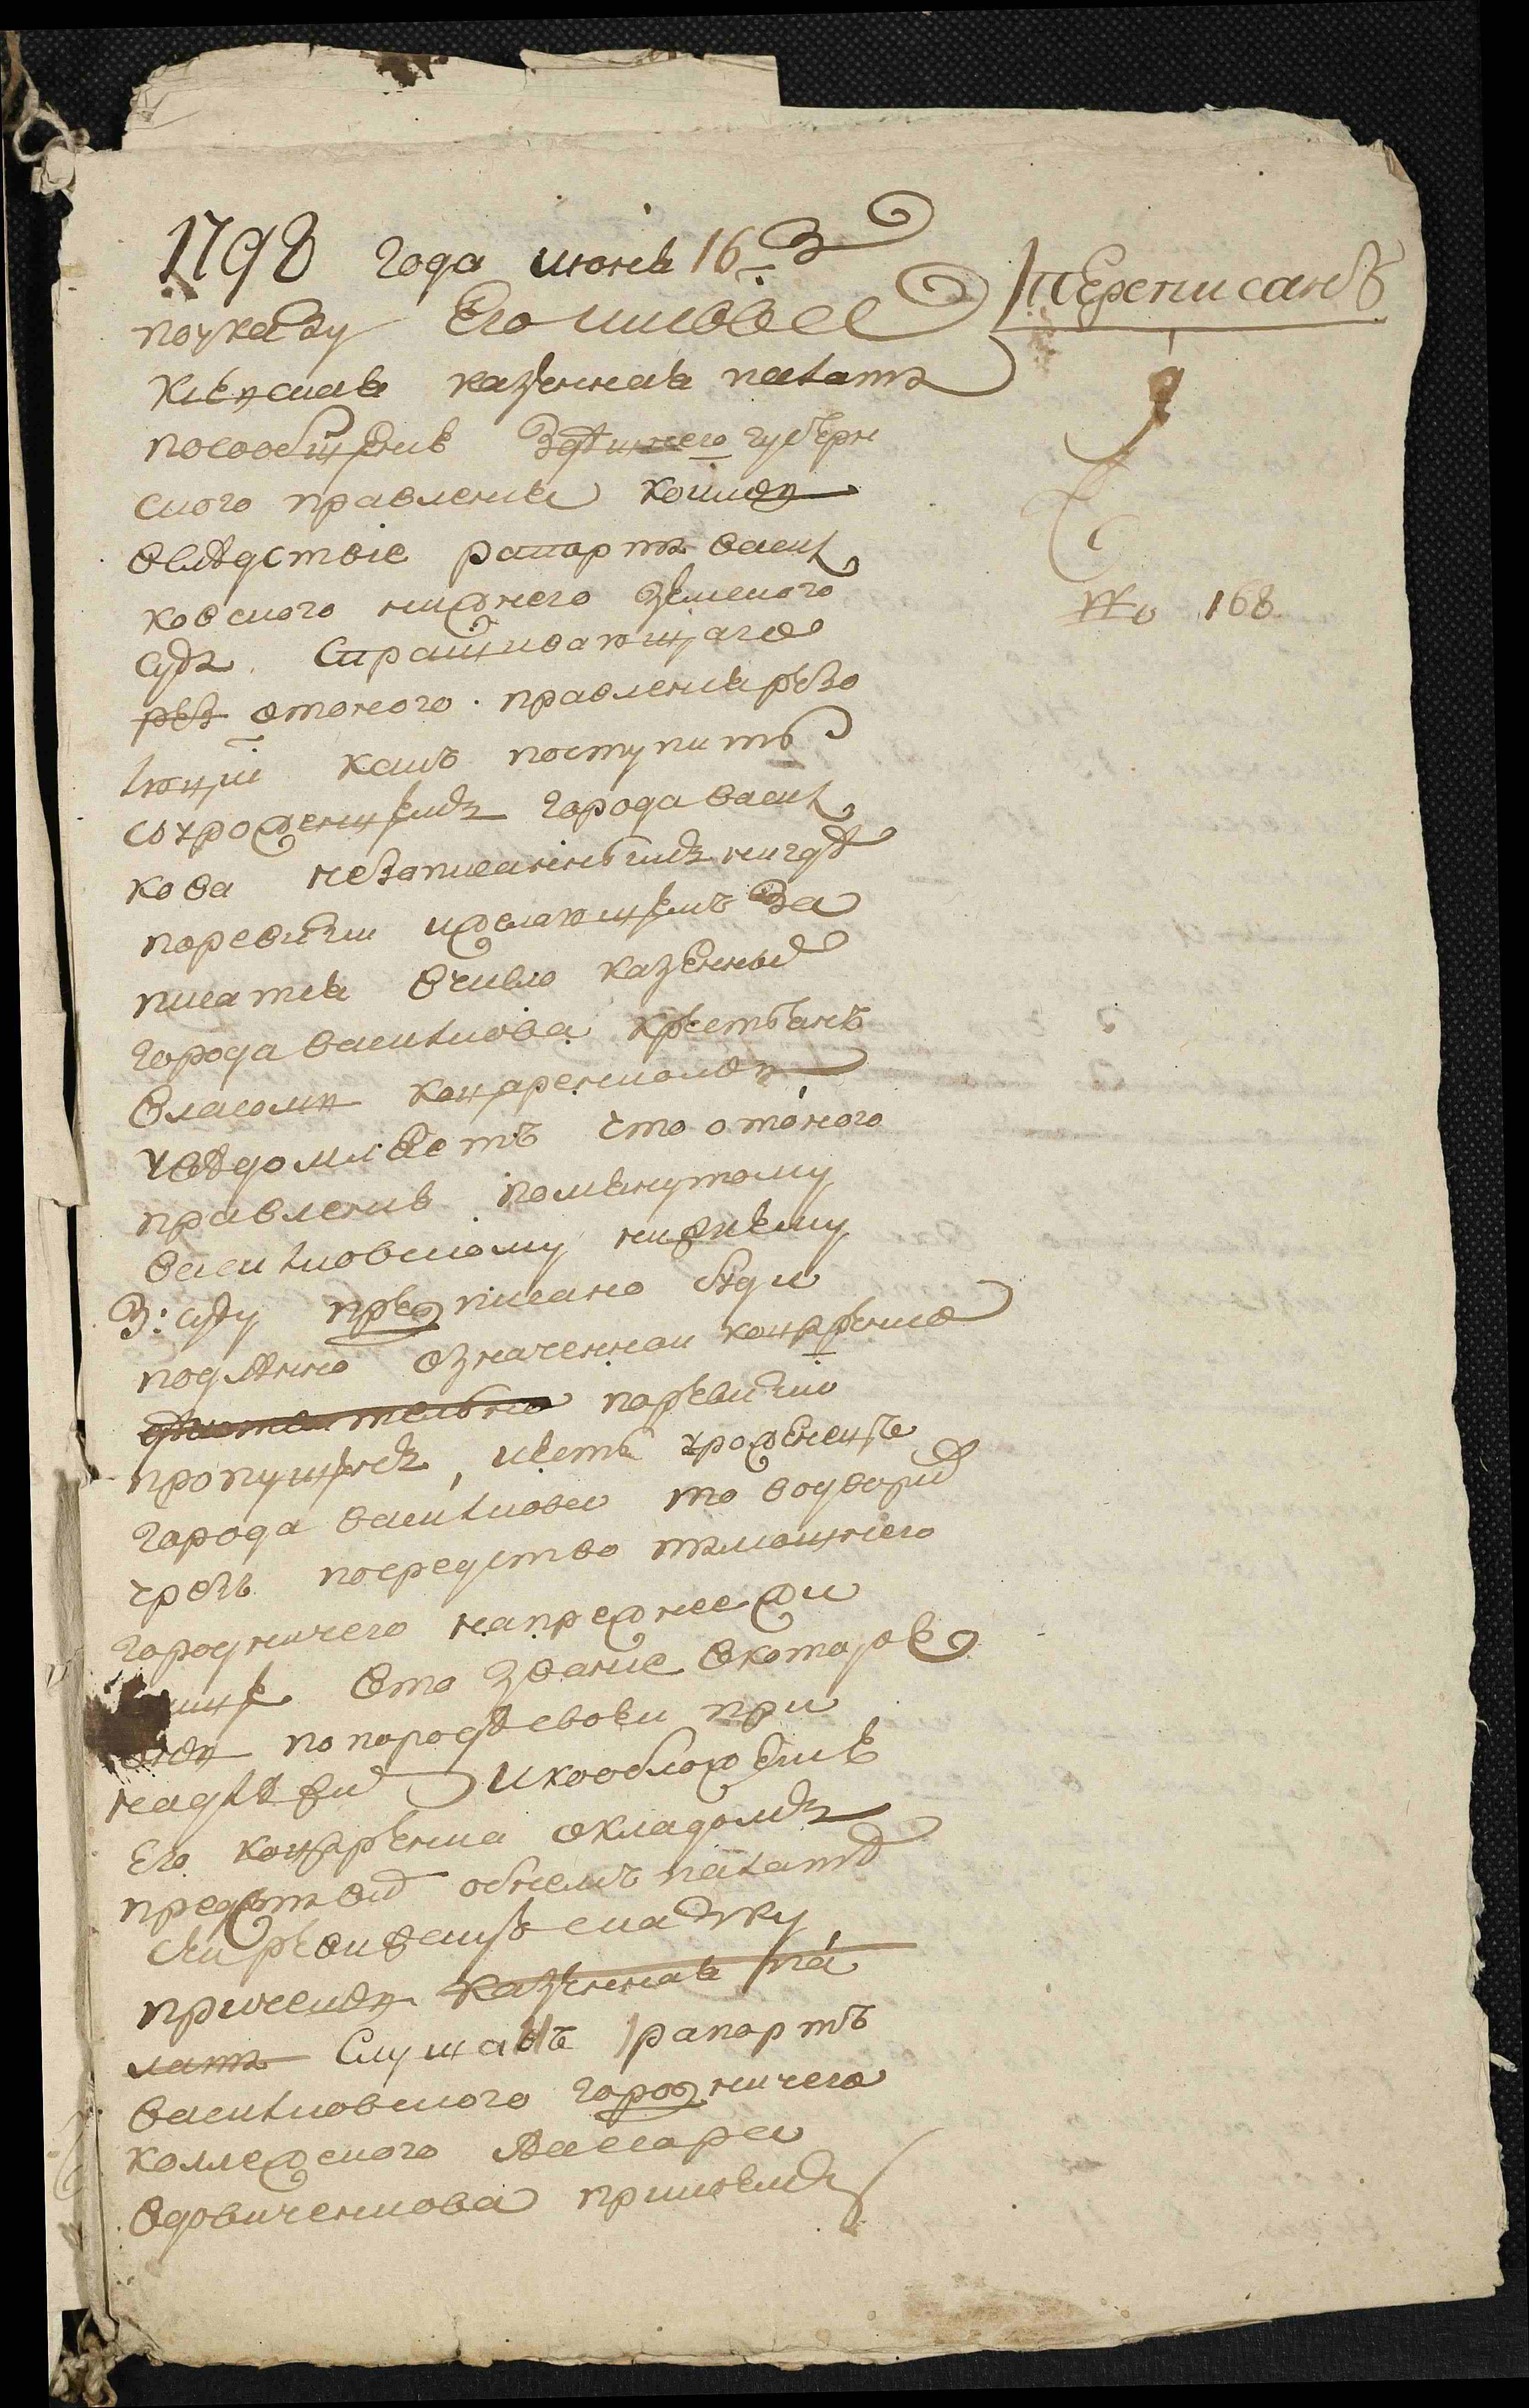 1798 года июня 16 з
по указу Его имвее
киевская казенная палата
по сообщению здешнего губерн
ского правления коимъ
вследствие рапорта васил
ковского нижнего земского
суда спрашивающаго
рез от оного правления резо
люции какъ поступить
с урожденцемъ города васил
кова незаписаннымъ нигде
по ревизии и желающимъ за
писатся в число казенныхъ
города василкова крестьянъ
власомъ кондренкомъ
уведомляетъ что от оного
правления помянутому
василковскому нижнему
з: суду предписано буди
подлинно означенной кондренко
действительно по ревизии
пропущенъ, и есть урожденецъ
города василкова то водворить
чрезъ посредство тамошнего
городничего на прежнее жи
лище в то звание в котором
онъ по породе своей при
надлежитъ и к обложению
Его кондренка окладомъ
представить о немъ палате
ревизскую сказку
приказали казенная па
лата слушавъ рапортъ
василковского городничего
коллежского асесора
вдовиченкова при коемъ
Переписанъ
No 168